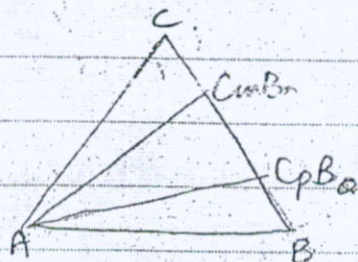 C
CmBn
CpBq
A
B